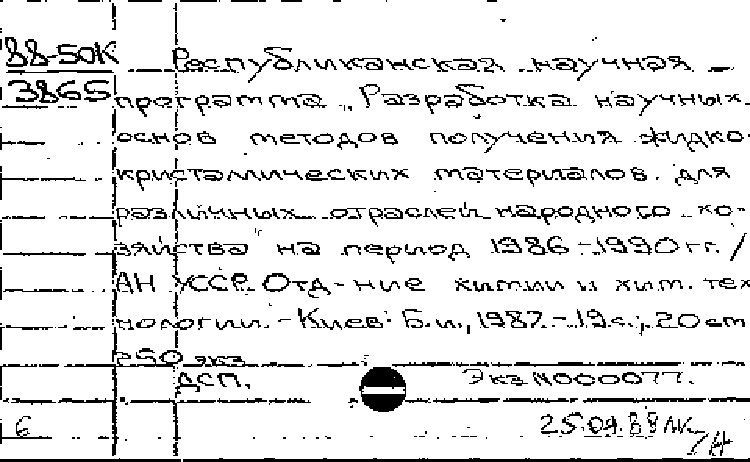 88-50К Республиканская научная
3865 программа „Разработка научных
основ методов получения жидко-
кристаллических материалов для
различных отраслей народного хо-
зяйства на период 1986-1990 гг. /
АН УССР. Отд-ние химии и хим. тех
нологии. - Киев: Б.и., 1987. - 19 с.; 20 см
250 экз.
ДСП. Экз N000077.
6 25.04.88 ЛК